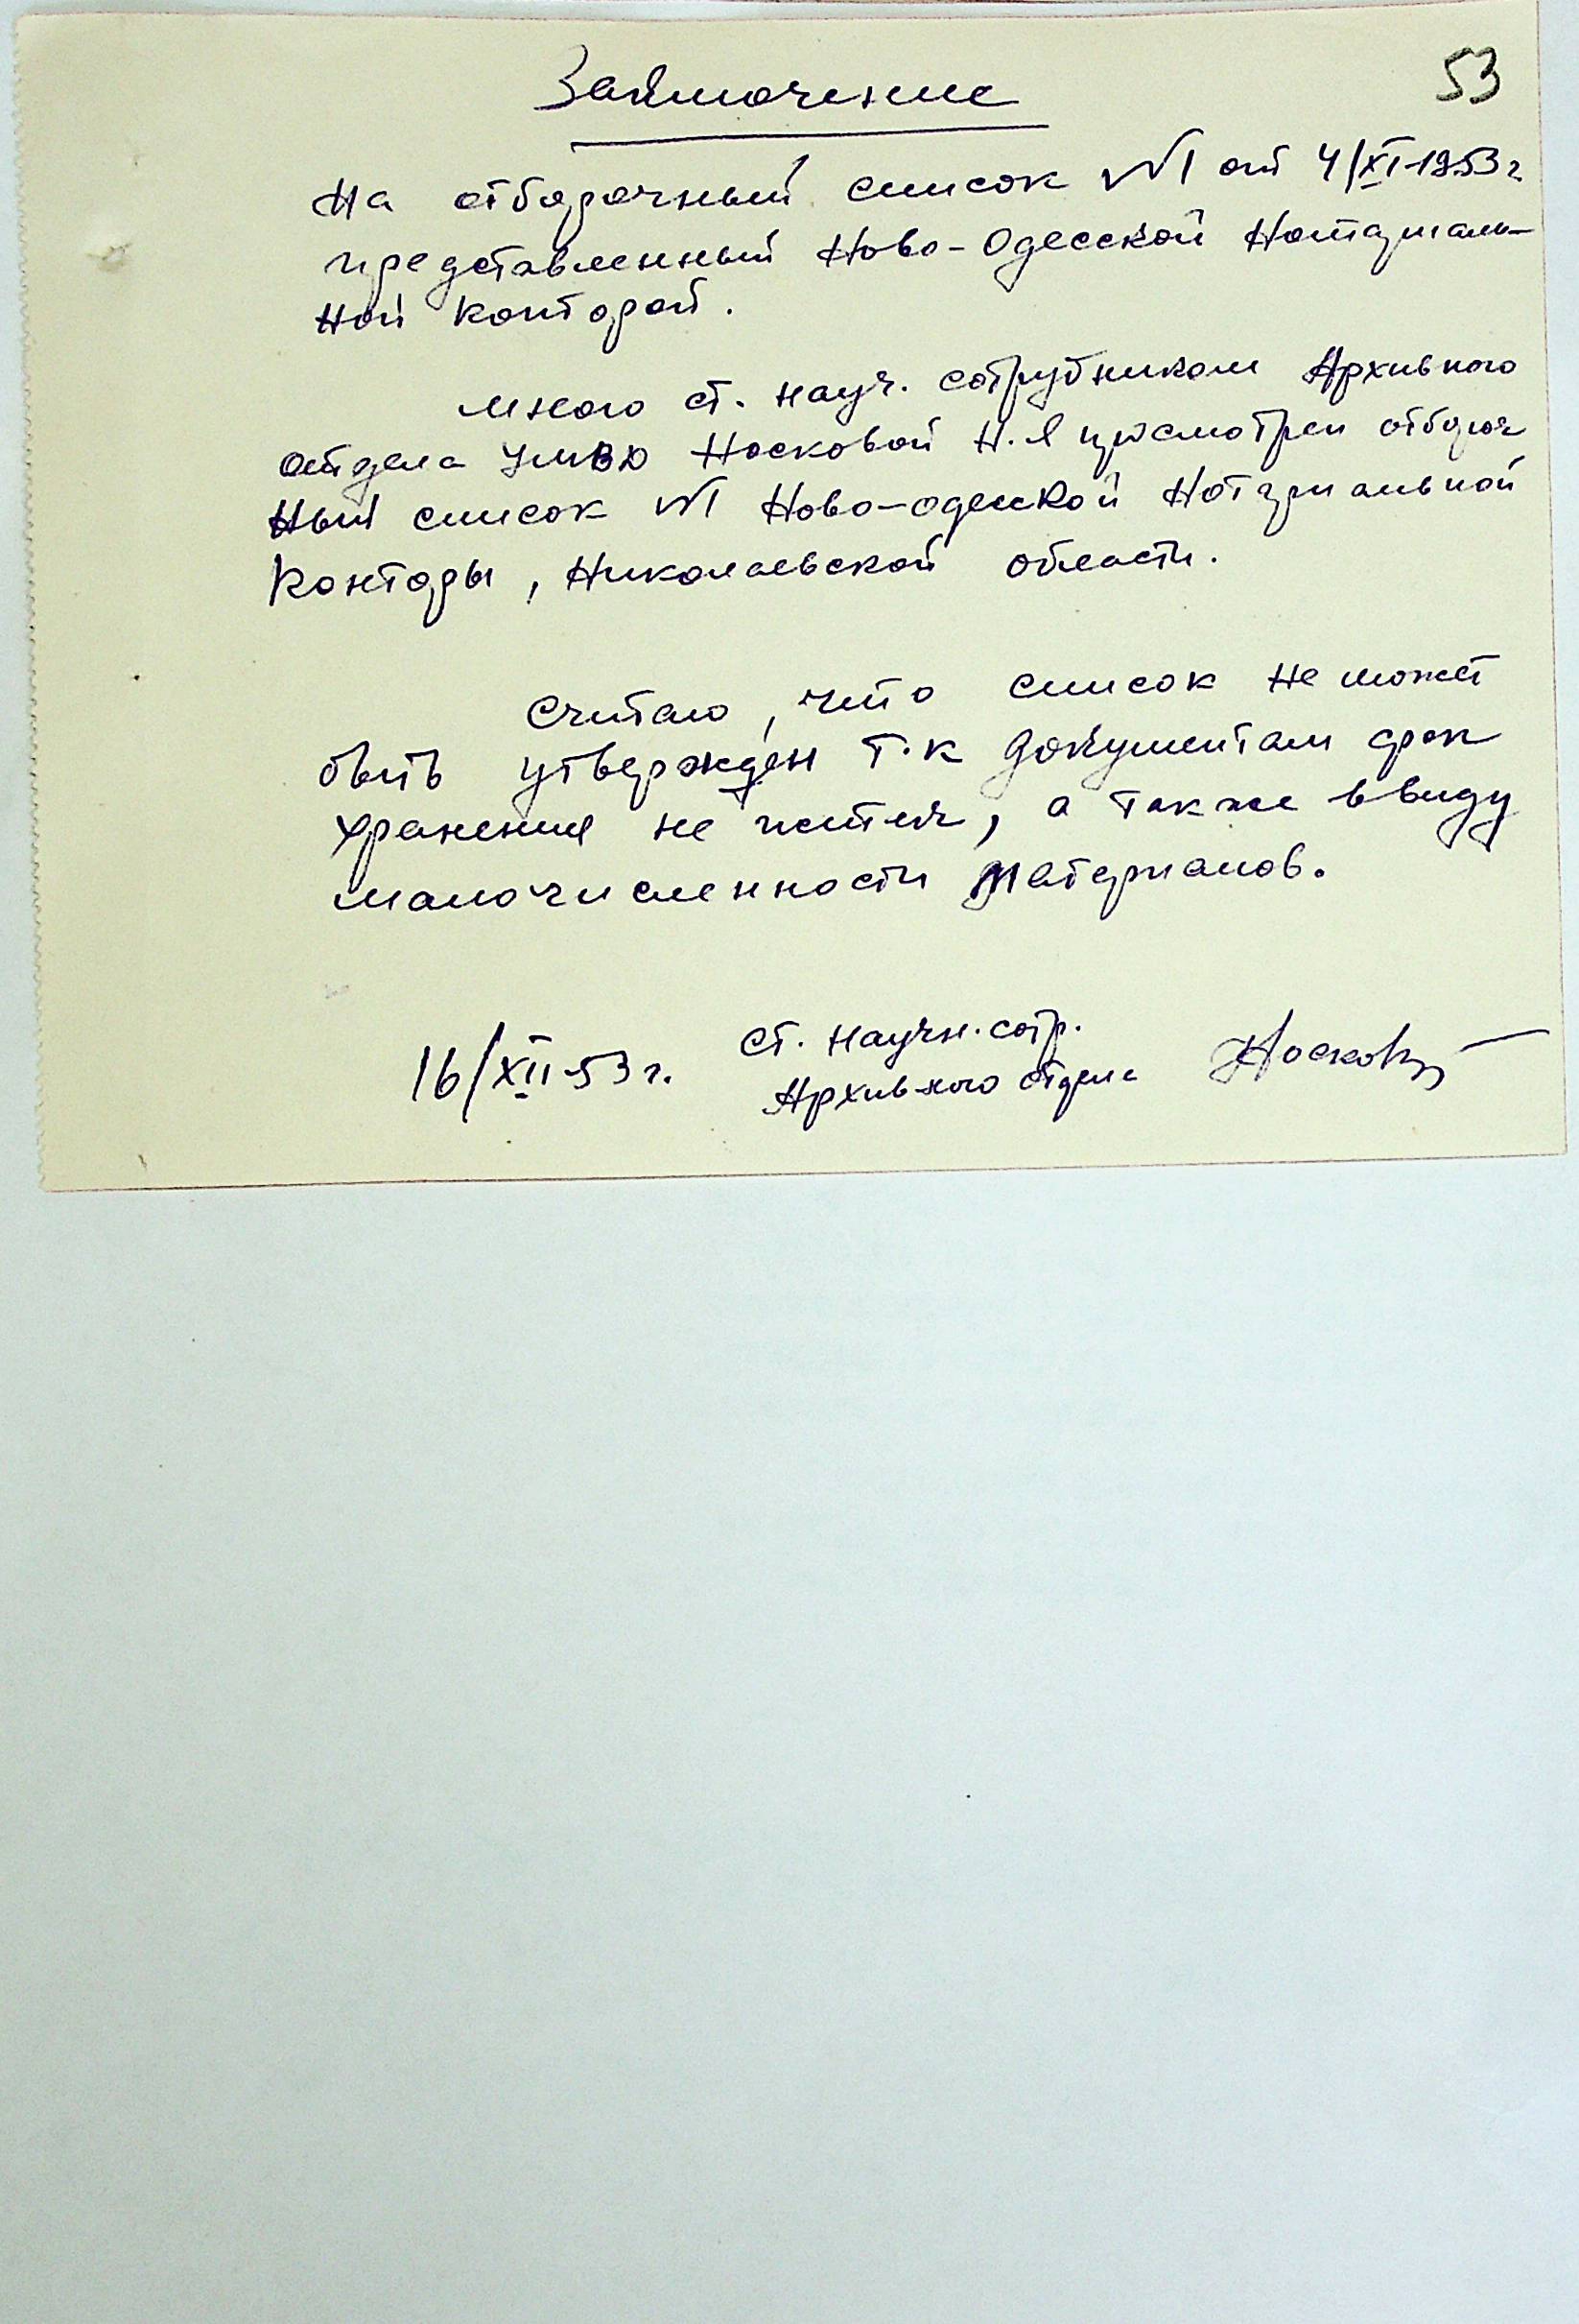 53
Заключение
На отборочный список №1 от 4/XI-1953 г
представленный Ново-Одесской Нотариаль-
ной конторой.
Мною ст. науч. сотрудником Архивного
отдела УМВД Носковой Н.Я просмотрен отбороч
ный список №1 Ново-одесской Нотариальной
Конторы, Николаевской области.
Считаю, что список не может
быть утвержден т.к документам срок
хранения не истек, а также ввиду
малочисленности материалов.
16/XII-53 г. ст. научн. сотр.
Архивного отдела Носкова